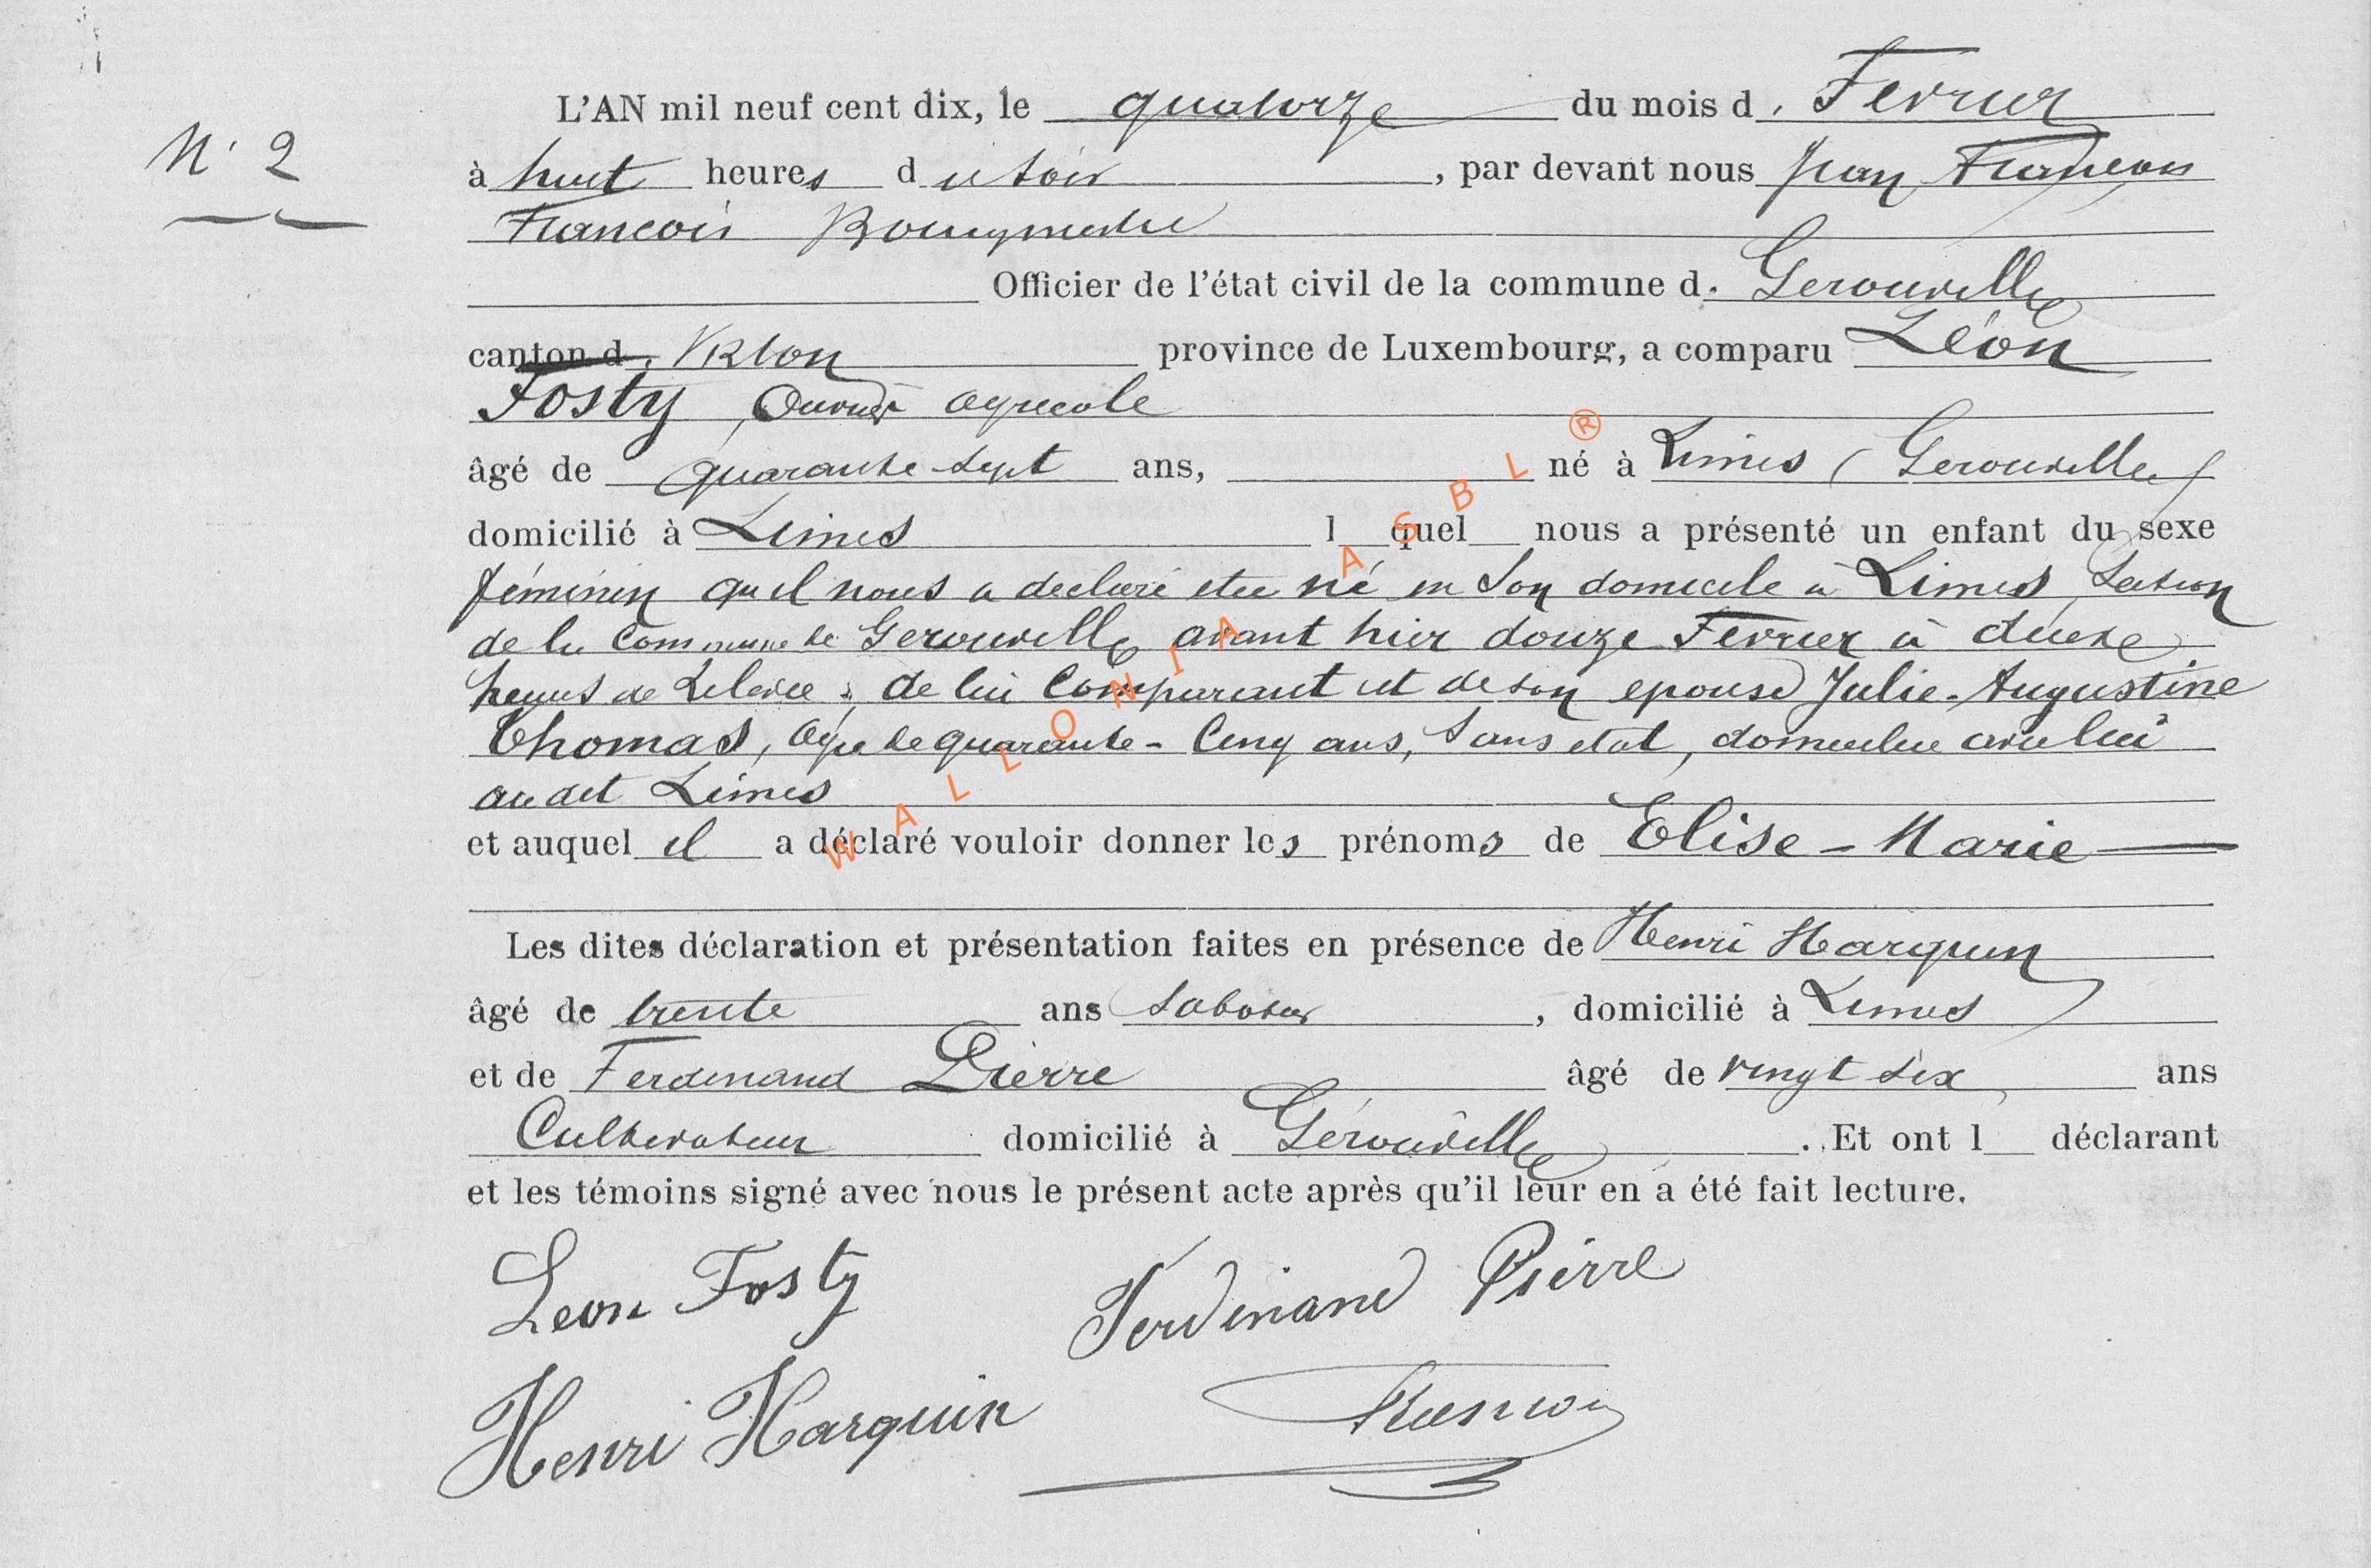 L'AN mil neuf cent dix, le quatorze du mois d. Fevrier
N° 2
à huit heures du soir, par devant nous Jean François
François Bourgmestre
Officier de l'état civil de la commune d. Gerouville
canton d. Virton province de Luxembourg, a comparu Léon
Fosty, Ouvrier agricole
âgé de quarante-sept ans, né à Limes (Gerouville)
domicilié à Limes l quel nous a présenté un enfant du sexe
féminin qu'il nous a declaré etre né en son domicile à Limes, section
de la Commune de Gerouville avant hier douze Fevrier à
heures de de lui Comparant et de son epouse Julie-Augustine
Thomas, agée de quarante-Cinq ans, Sans etat, domiciliée avec lui
au dit Limes
et auquel il a déclaré vouloir donner les prénoms de Elise-Marie
Les dites déclaration et présentation faites en présence de Henri Harquin
âgé de trente ans Sabotier, domicilié à Limes
et de Ferdinand Pierre âgé de vingt six ans
Cultivateur domicilié à Gérouville. Et ont l déclarant
et les témoins signé avec nous le présent acte après qu'il leur en a été fait lecture.
Leon Fosty Ferdinand Pierre
Henri Harquin François
WALLONIA ASBL ®